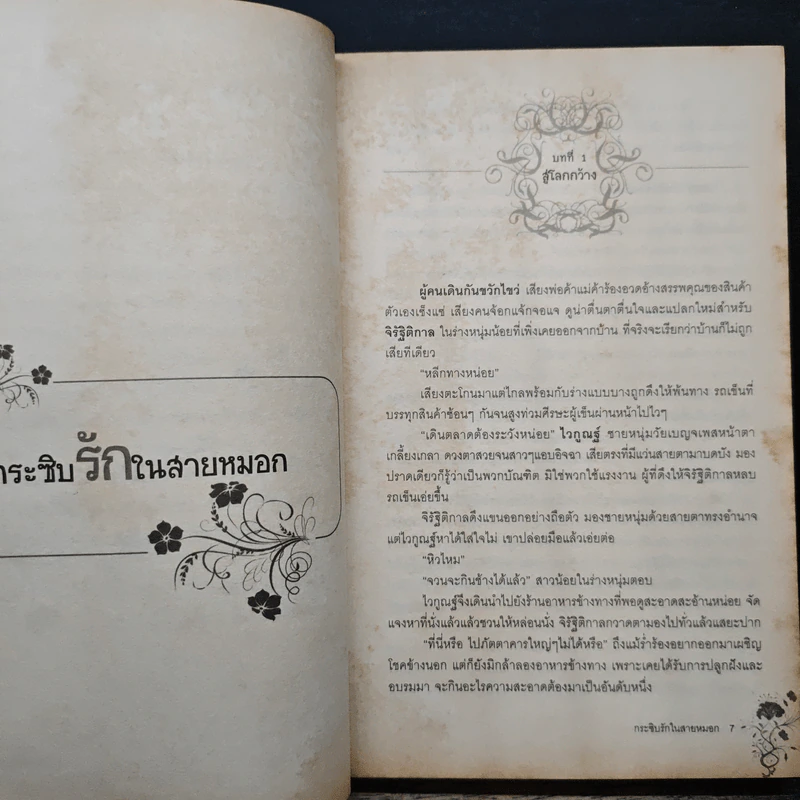 กระซิบรักในสายหมอก
บทที่ 1
สู่โลกกว้าง
ผู้คนเดินกันขวักไขว่ เสียงพ่อค้าแม่ค้าร้องอวดอ้างสรรพคุณของสินค้า
ตัวเองเซ็งแซ่ เสียงคนจ้อกแจ้กจอแจ ดูน่าตื่นตาตื่นใจและแปลกใหม่สำหรับ
จิรัฐิติกาล ในร่างหนุ่มน้อยที่เพิ่งเคยออกจากบ้าน ที่จริงจะเรียกว่าบ้านก็ไม่ถูก
เสียทีเดียว
“หลีกทางหน่อย”
เสียงตะโกนมาแต่ไกลพร้อมกับร่างแบบบางถูกดึงให้พ้นทาง รถเข็นที่
บรรทุกสินค้าซ้อนๆ กันจนสูงท่วมศีรษะผู้เข็นผ่านหน้าไปไวๆ
“เดินตลาดต้องระวังหน่อย” ไวกูณฐ์ ชายหนุ่มวัยเบญจเพสหน้าตา
เกลี้ยงเกลา ดวงตาสวยจนสาวๆแอบอิจฉา เสียตรงที่มีแว่นสายตามาบดบัง มอง
ปราดเดียวก็รู้ว่าเป็นพวกบัณฑิต มิใช่พวกใช้แรงงาน ผู้ที่ดึงให้จิรัฐิติกาลหลบ
รถเข็นเอ่ยขึ้น
จิรัฐิติกาลดึงแขนออกอย่างถือตัว มองชายหนุ่มด้วยสายตาทรงอำนาจ
แต่ไวกูณฐ์หาได้ใส่ใจไม่ เขาปล่อยมือแล้วเอ่ยต่อ
“หิวไหม”
“จวนจะกินช้างได้แล้ว” สาวน้อยในร่างหนุ่มตอบ
ไวกูณฐ์จึงเดินนำไปยังร้านอาหารข้างทางที่พอดูสะอาดสะอ้านหน่อย จัด
แจงหาที่นั่งแล้วแล้วชวนให้หล่อนนั่ง จิรัฐิติกาลกวาดตามองไปทั่วแล้วแสยะปาก
“ที่นี่หรือ ไปภัตตาคารใหญ่ๆไม่ได้หรือ” ถึงแม้ร่ำร้องอยากออกมาเผชิญ
โชคข้างนอก แต่ก็ยังมิกล้าลองอาหารข้างทาง เพราะเคยได้รับการปลูกฝังและ
อบรมมา จะกินอะไรความสะอาดต้องมาเป็นอันดับหนึ่ง
กระซิบรักในสายหมอก 7